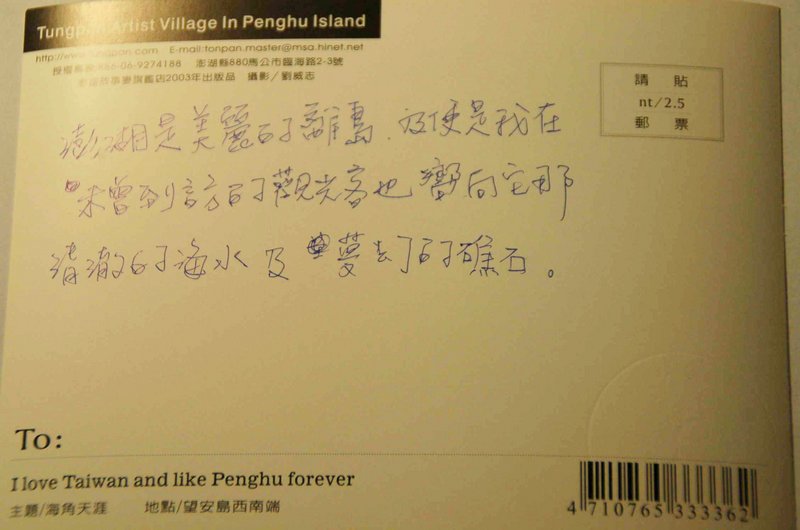 Tungpan Artist Village In Penghu Island
http://www.tungpan.com E-mail:tonpan.master@msa.hinet.net
886-06-9274188 澎湖縣880馬公市臨海路2-3號
2003年出版品 攝影/劉威志
請貼
nt/2.5
郵票
澎湖是美麗的離島.及使是我在
未曾到訪的觀光客也嚮向它那
清澈的海水及夢幻的礁石。
To:
I love Taiwan and like Penghu forever
主題/海角天涯 地點/望安島西南端
4 710765 333362